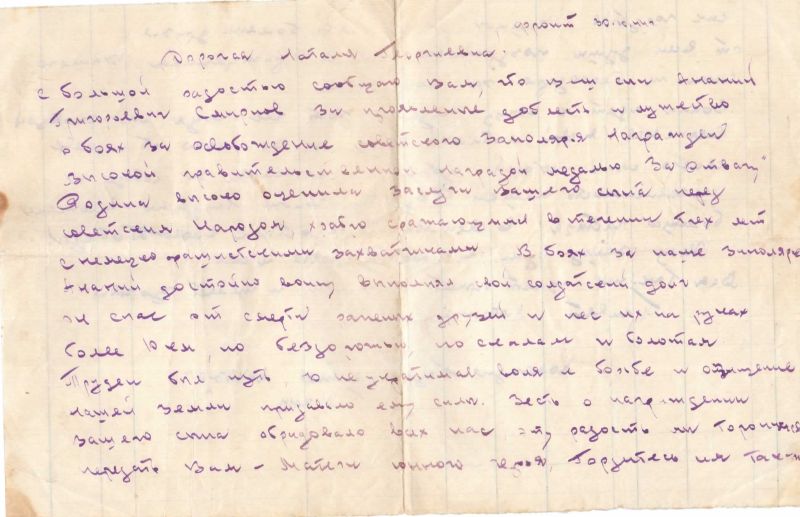 фронт 30.
Дорогая Наталя Георгиевна.
с большой радостью сообщаю Вам, что ваш сын Ананий
Григорьевич Смирнов за проявленые доблесть и мужество
в боях за освобождение советского Заполярья Награжден
высокой правительственной Наградой медалью За отвагу"
Родина высоко оценила заслуги Вашего сына перед
советским Народом храбро сражающимся в течении трех лет
с немецко фашистскими захватчиками В боях за наше Заполярье
Ананий достойно воину выполнял свой солдатский долг
он спас от смерти раненых друзей и нес их на руках
более 10 км, по бездорожью, по скалам и болотам
Труден был путь, но неукратимая воля к борьбе и
нашей земли придавало ему силы. Весть о награждении
вашего сына обрадовало всех нас эту радость мы торопимся
передать Вам - Матери юного героя, Гордитесь им Так-же